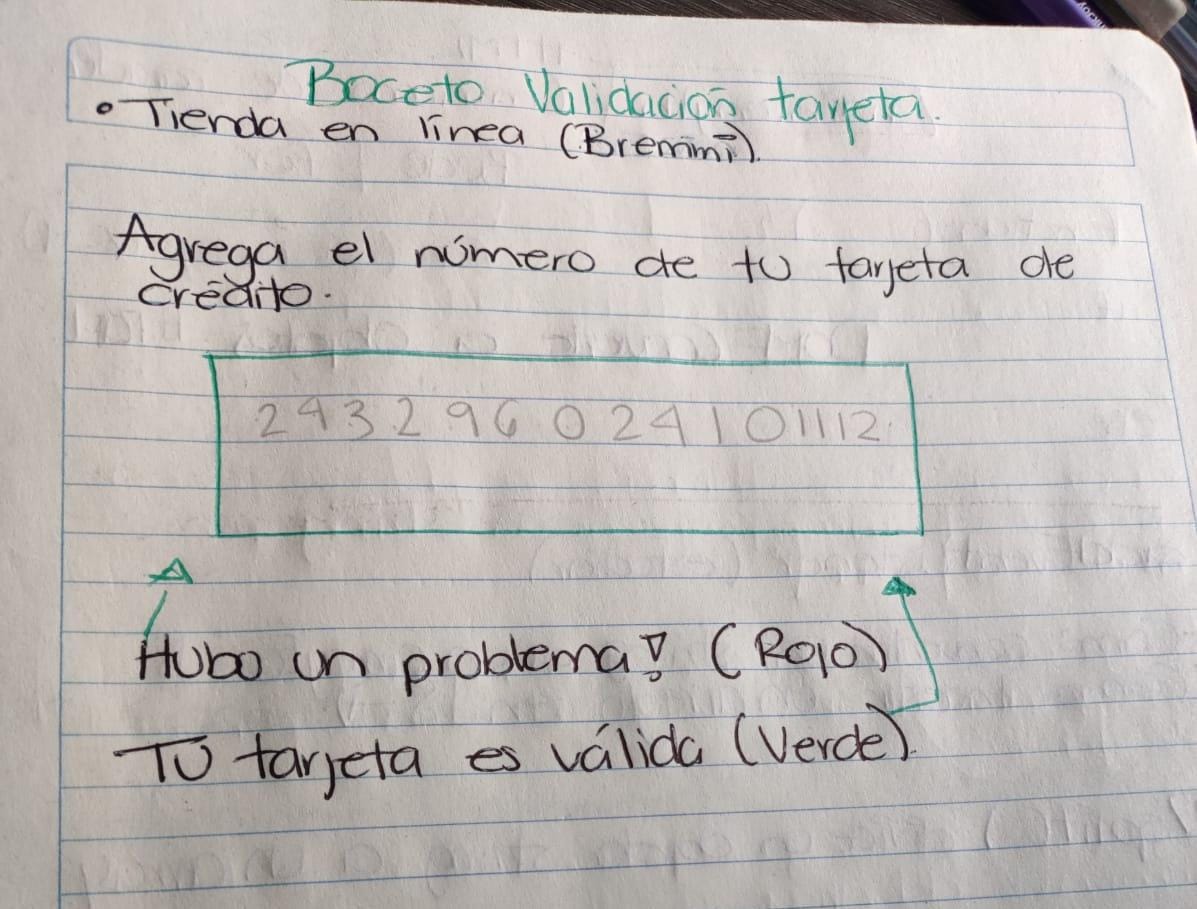 Boceto Validación tarjeta.
• Tienda en línea (Bremmi).
Agrega el número de tu tarjeta de
crédito.
243296024101112
Hubo un problema! (Rojo)
Tu tarjeta es válida (Verde).